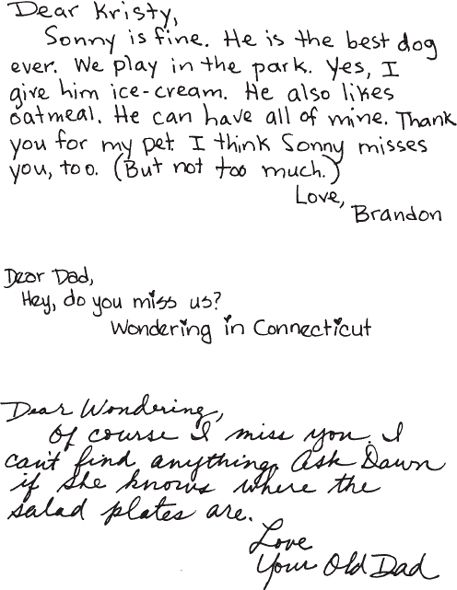 Dear Kristy,
Sonny is fine. He is the best dog
ever. We play in the park. Yes, I
give him ice-cream. He also likes
oatmeal. He can have all of mine. Thank
you for my pet. I think Sonny misses
you, too. (But not too much.)
Love,
Brandon
Dear Dad,
Hey, do you miss us?
Wondering in Connecticut
Dear Wondering,
Of course I miss you. I
can't find anything. Ask Dawn
if she knows where the
salad plates are.
Love
Your Old Dad